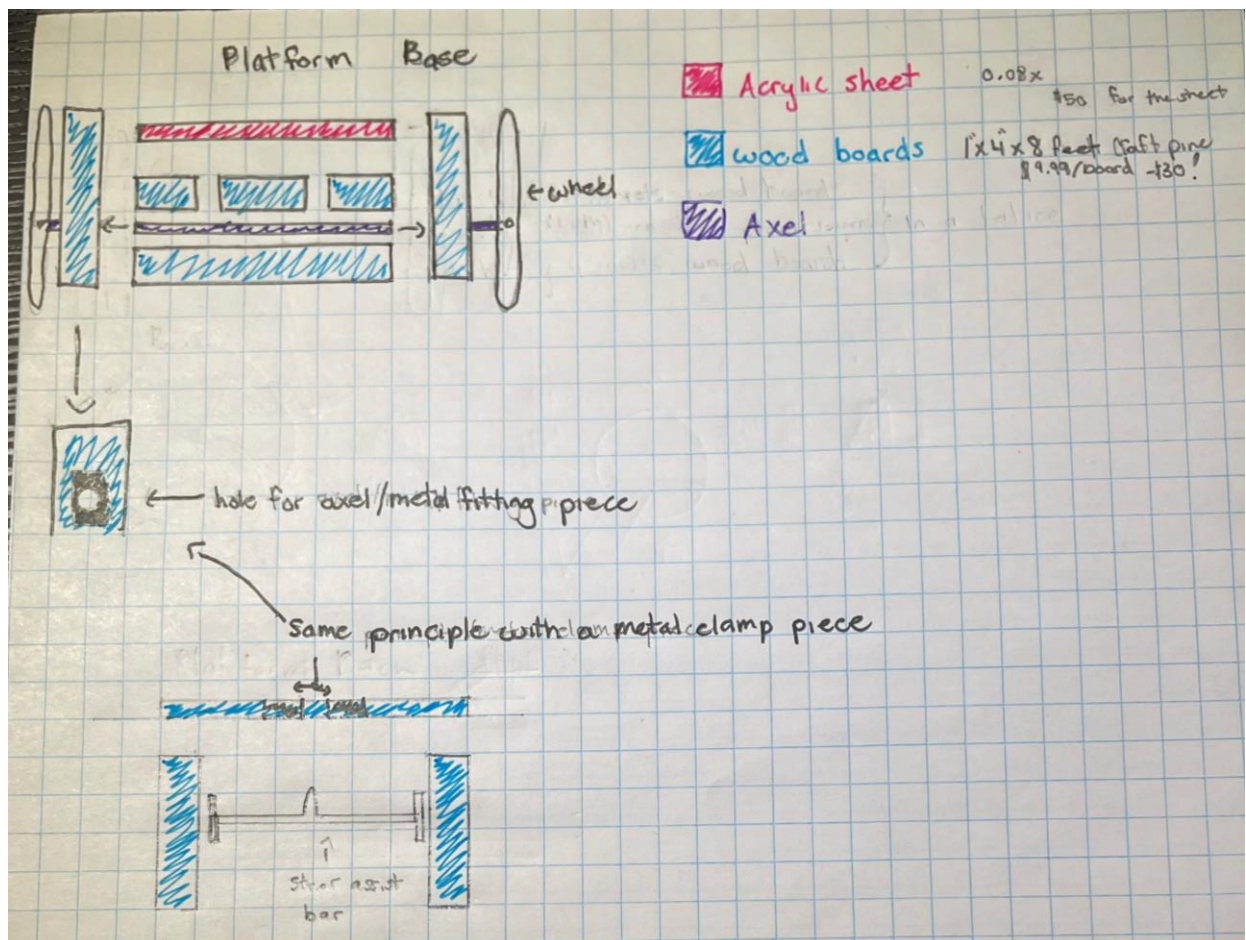 Platform Base
Acrylic sheet 0.08x
$50 for the sheet
wood boards 1"x4"x8 feet Craft pine
$9.99/board -$30!
Axel
←wheel
hole for axel/metal fitting piece
Same principle with a metal clamp piece
assist
bar